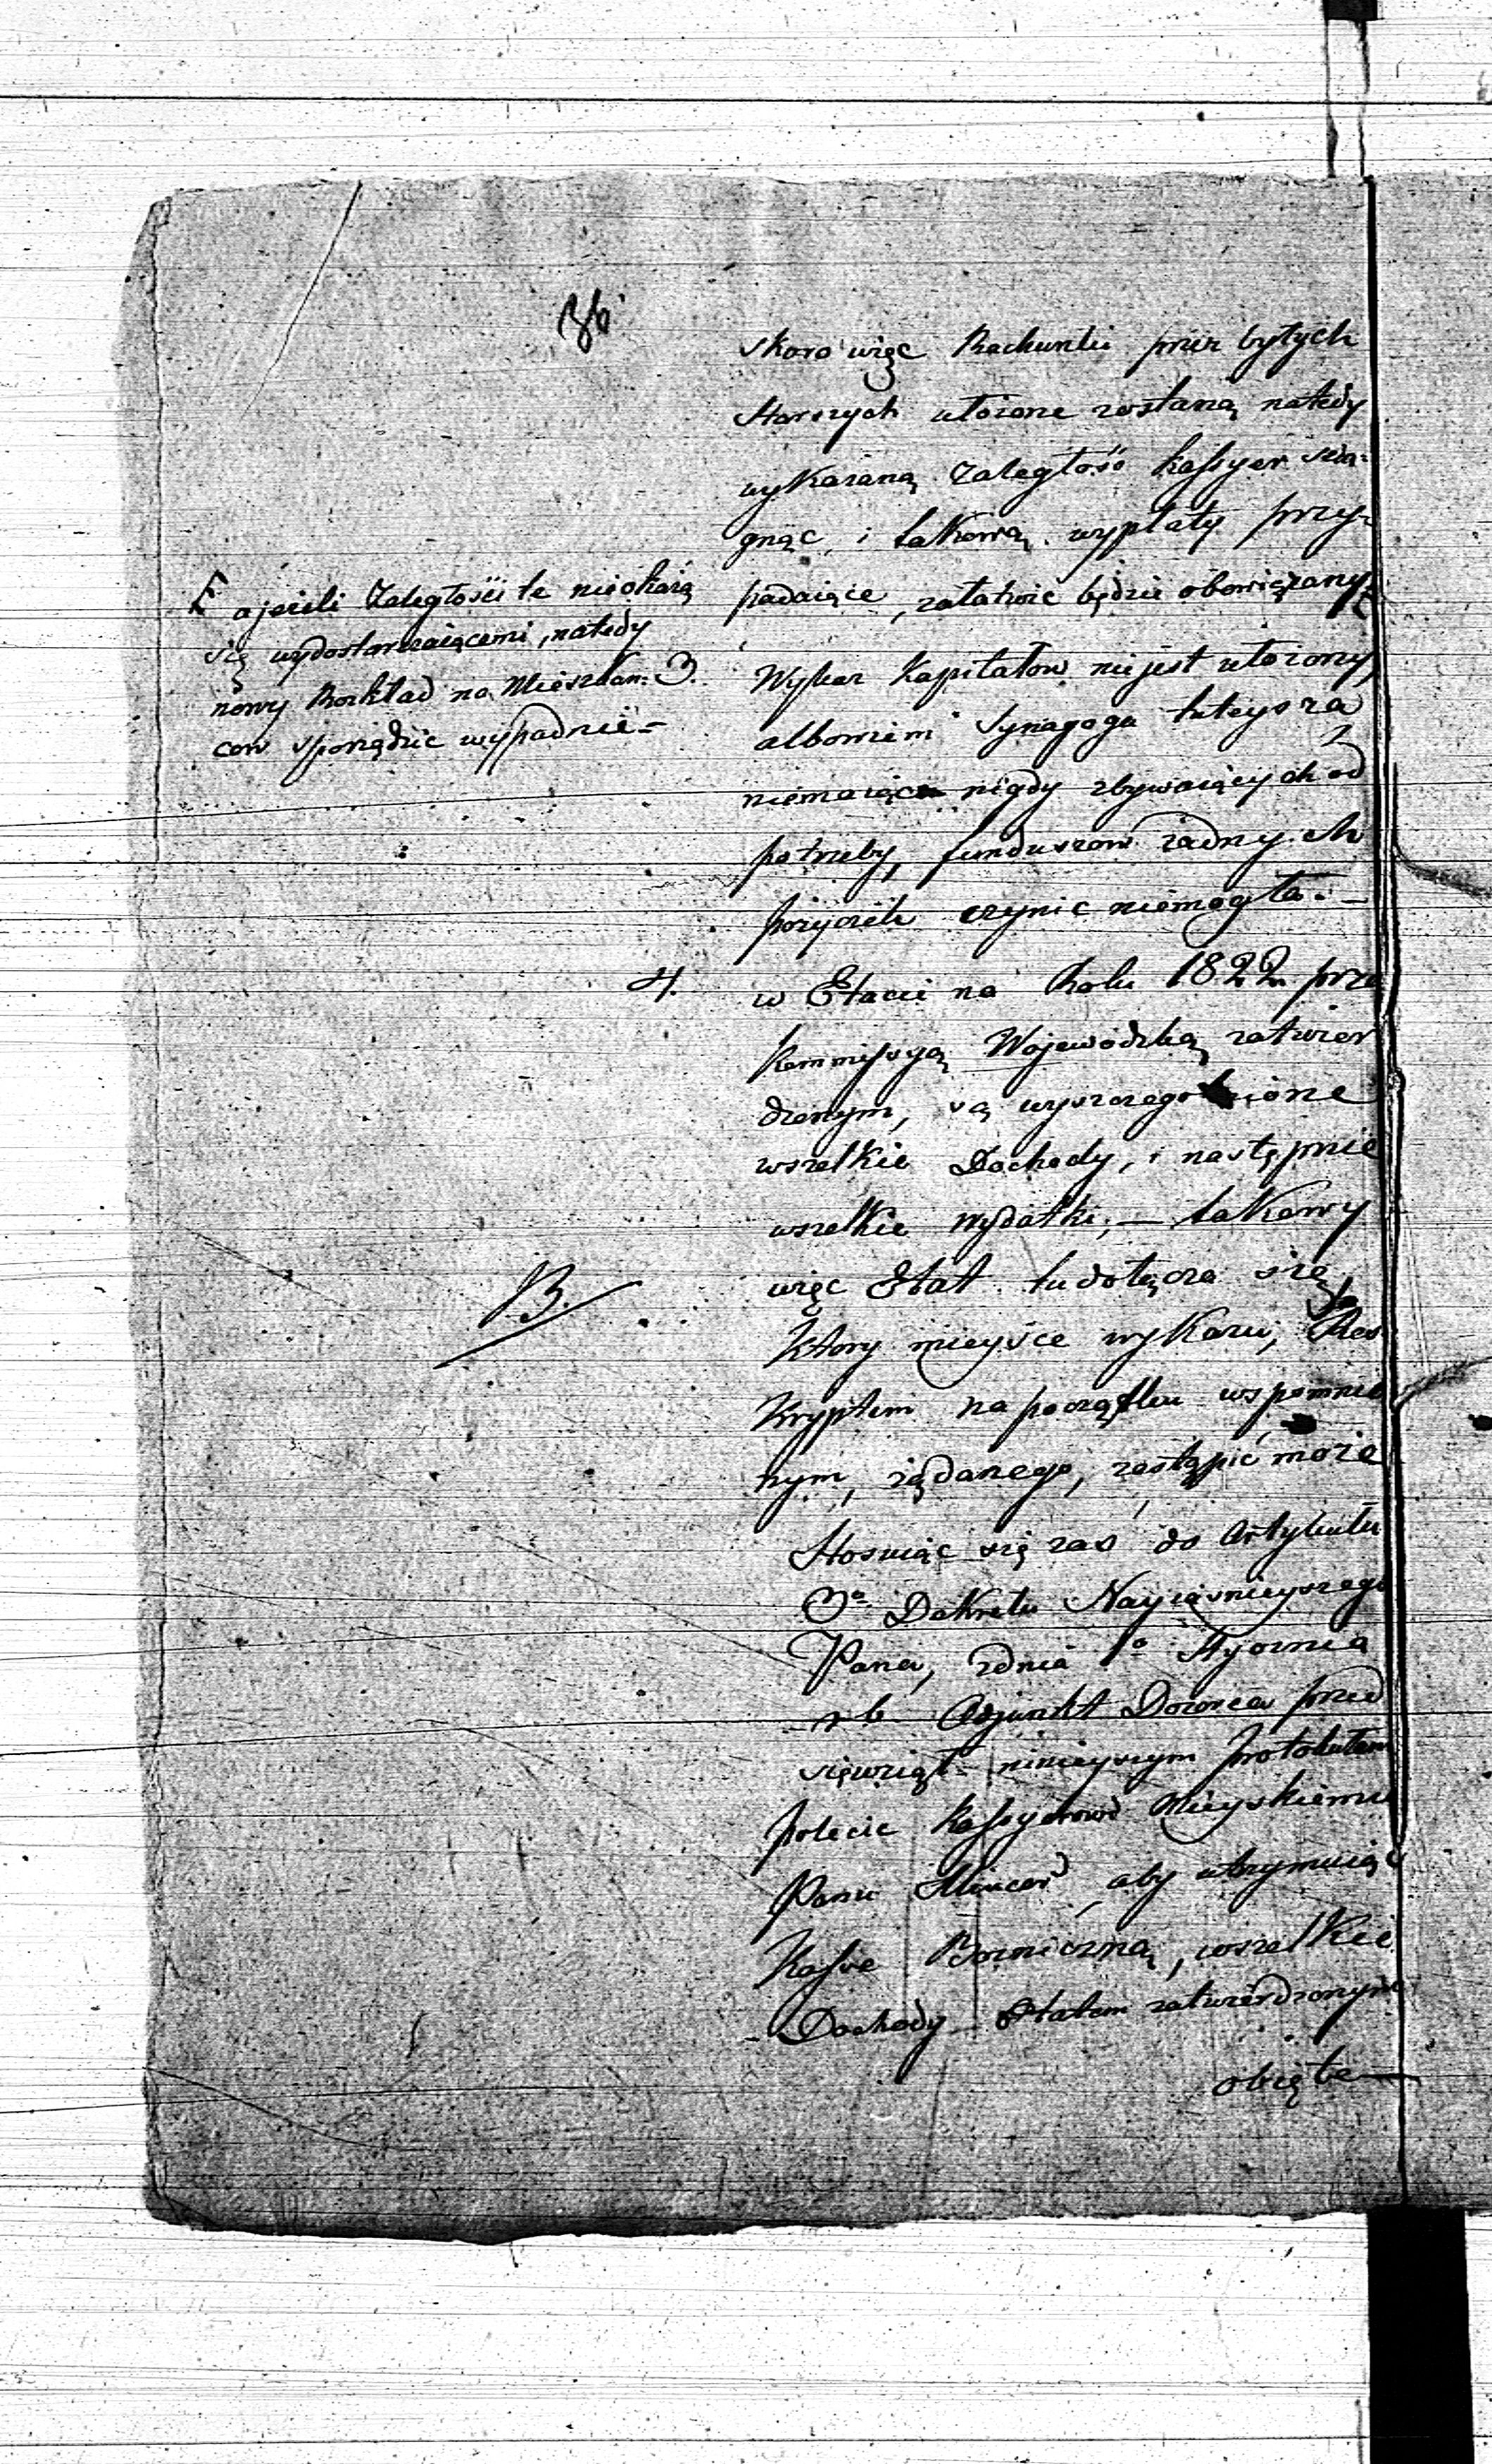 36
skoro więc Rachunki przez byłych
Starszych ułożone zostaną natedy
wykazaną zaległość Kassyer ścią-
gnąć, i takową wypłaty przy-
padaiące, załatwić będzie obowiązany
a jeżeli Zaległości te nieokażą
się wydostarczaiącemi, natedy
nowy Rozkład na Mieszkań-
cow sporządzic wypadnie -
3. Wykaz Kapitałow nie jest ułożony,
albowiem Synagoga tuteysza
niemaiąc nigdy zbywaiących od
potrzeby, funduszow żadnych
pożyczek czynić niemogła. -
4. w Etacie na Rok 1822 prze
Kommissyą Wojewódzką zatwier
dzonym, są wyszczegolnione
wszelkie Dochody, i następnie
wszelkie wydatki, - takowy
więc Etat tu dołącza się,
B.
ktory mieysce wykazu, Res
kryptem na początku wspomnio
nym, żądanego, zastąpić może
Stosuiąc się zas do Artykułu
3o Dekretu Nayiaśnieyszego
Pana, z dnia 1o Stycznia
r b Adjunkt Dozorca przed
sięwziął ninieyszym protokułem
polecic Kassyerowi Mieyskiemu
Panu aby utrzymuiąc
Kasse Bożniczną, wszelkie
Dochody Etatem zatwierdzonym
obięte